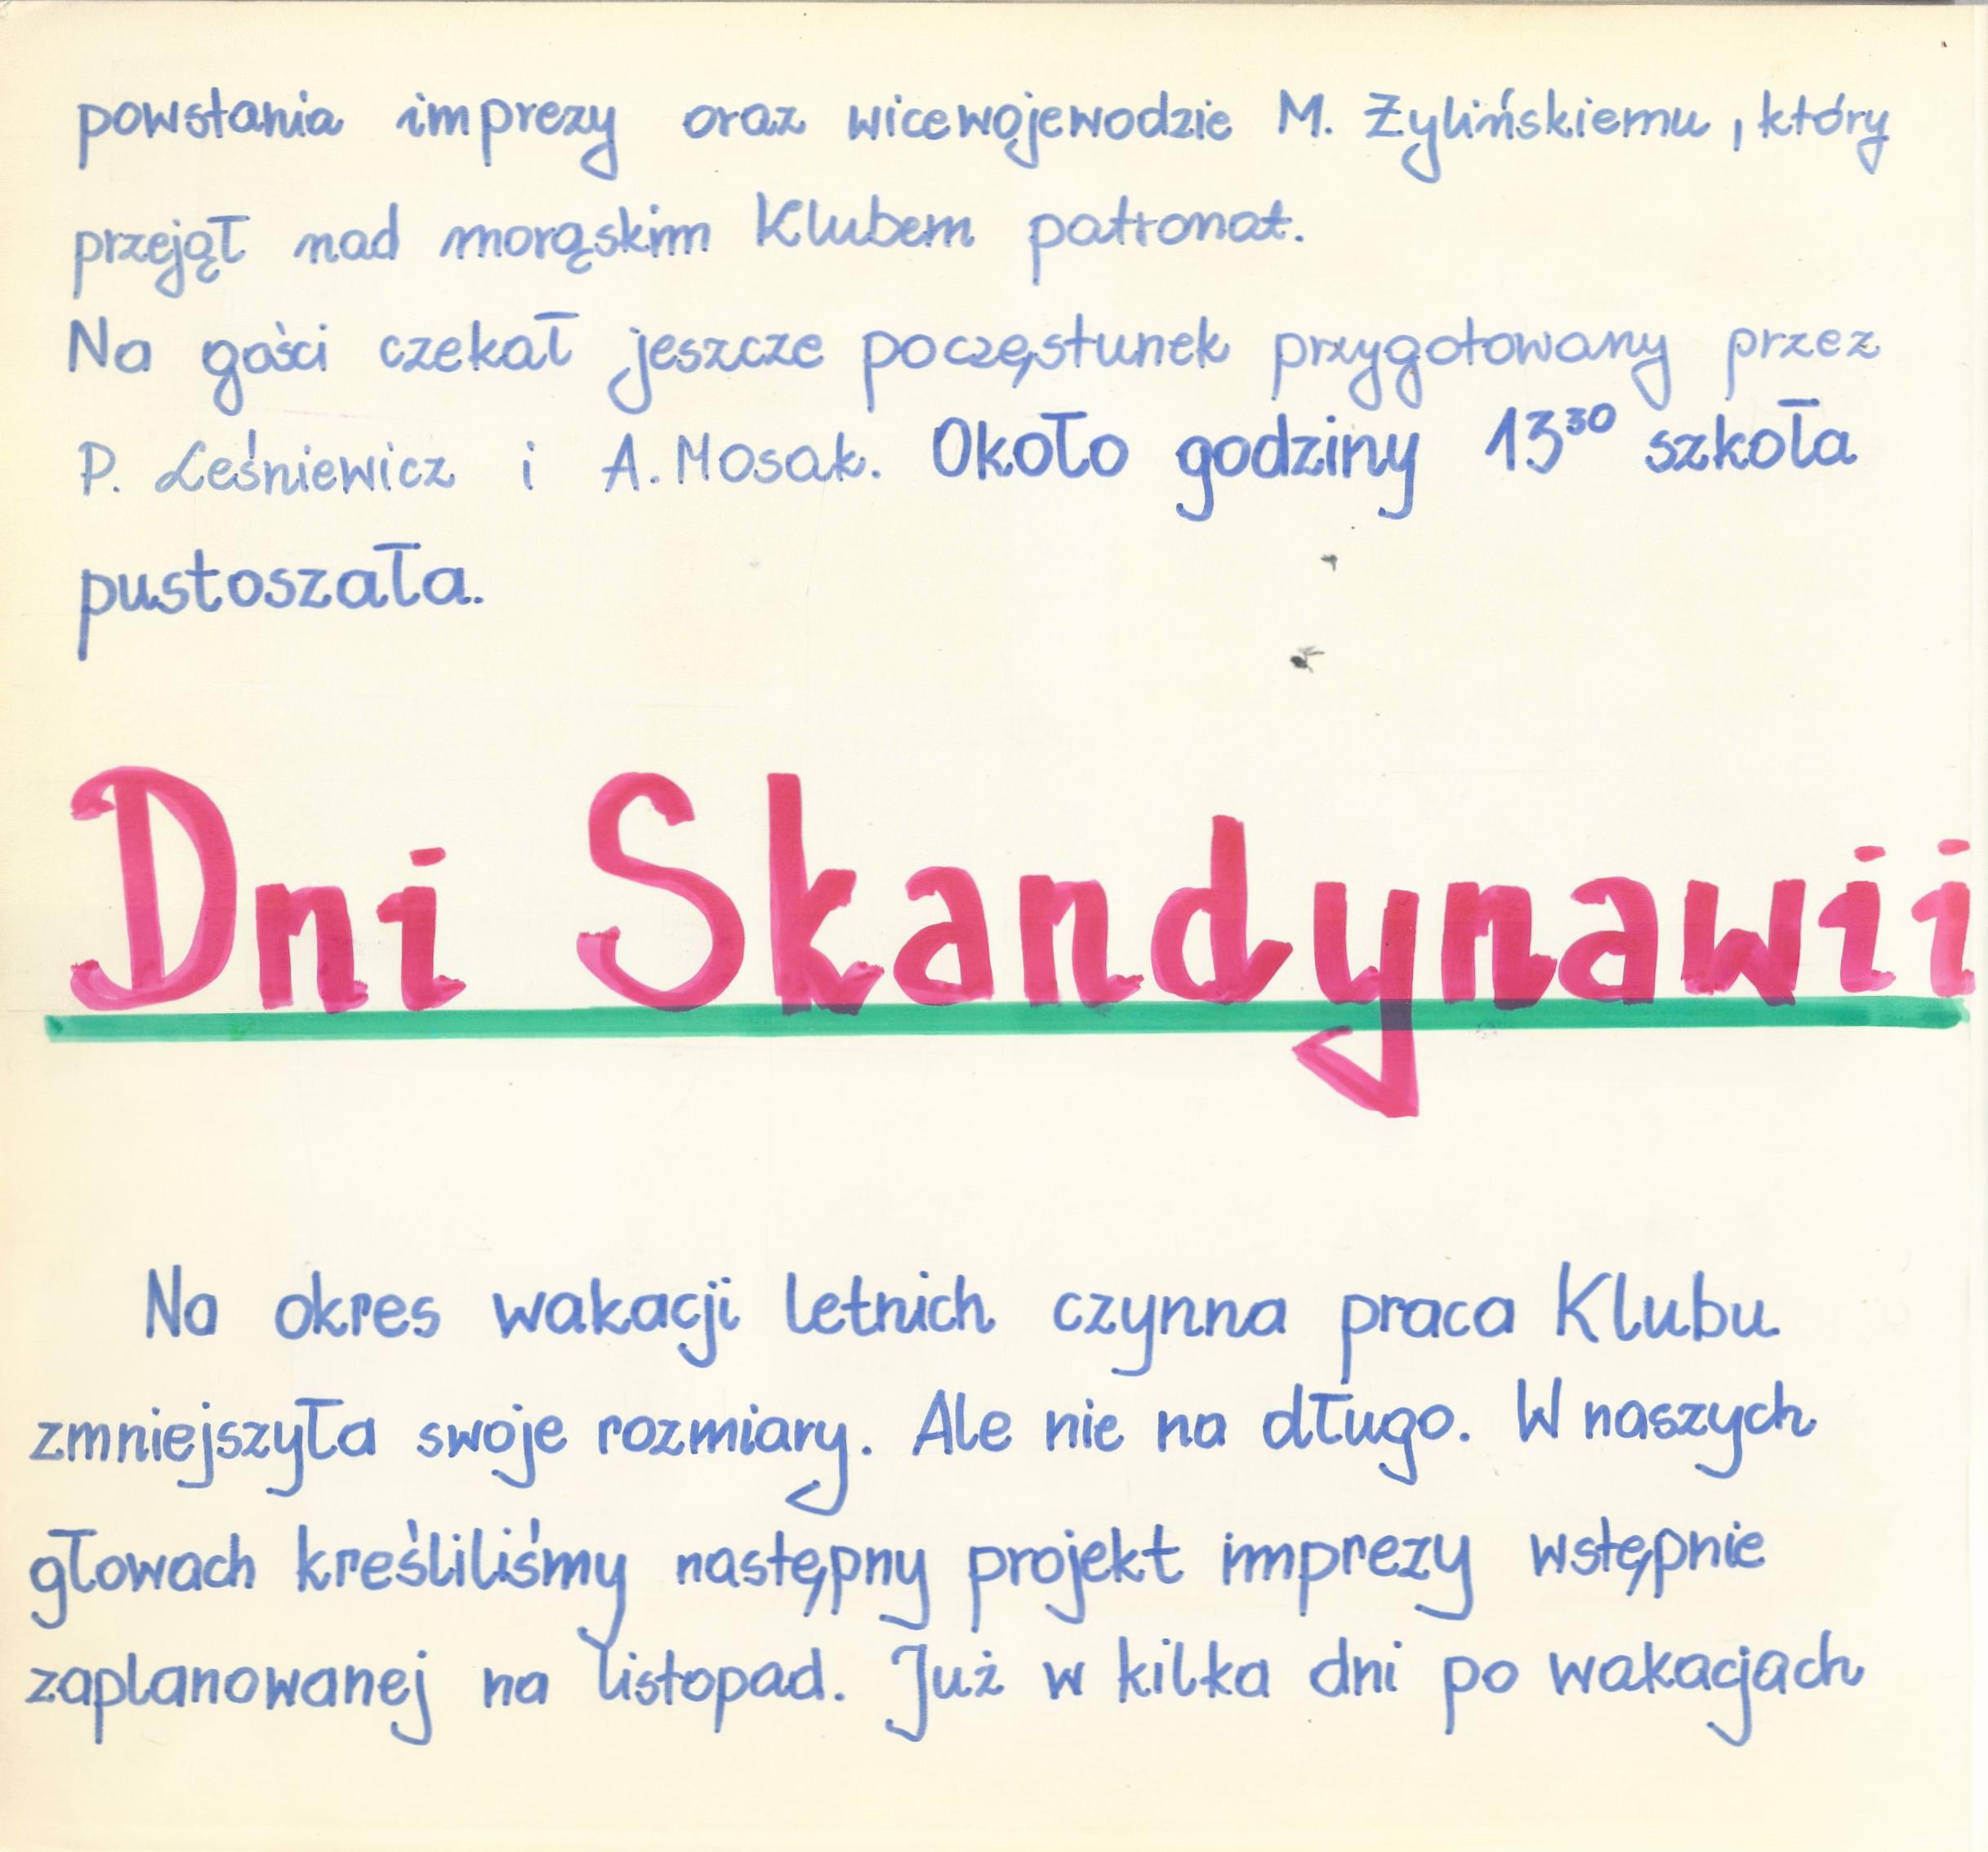 powstania imprezy oraz wicewojewodzie M. Żylińskiemu, który
przejął nad morąskim Klubem patronat.
Na gości czekał jeszcze poczęstunek przygotowany przez
P. Leśniewicz i A. Mosak. Około godziny 13³⁰ szkoła
pustoszała.
Dni Skandynawii
Na okres wakacji letnich czynna praca Klubu
zmniejszyła swoje rozmiary. Ale nie na długo. W naszych
głowach kreśliliśmy następny projekt imprezy wstępnie
zaplanowanej na listopad. Już w kilka dni po wakacjach